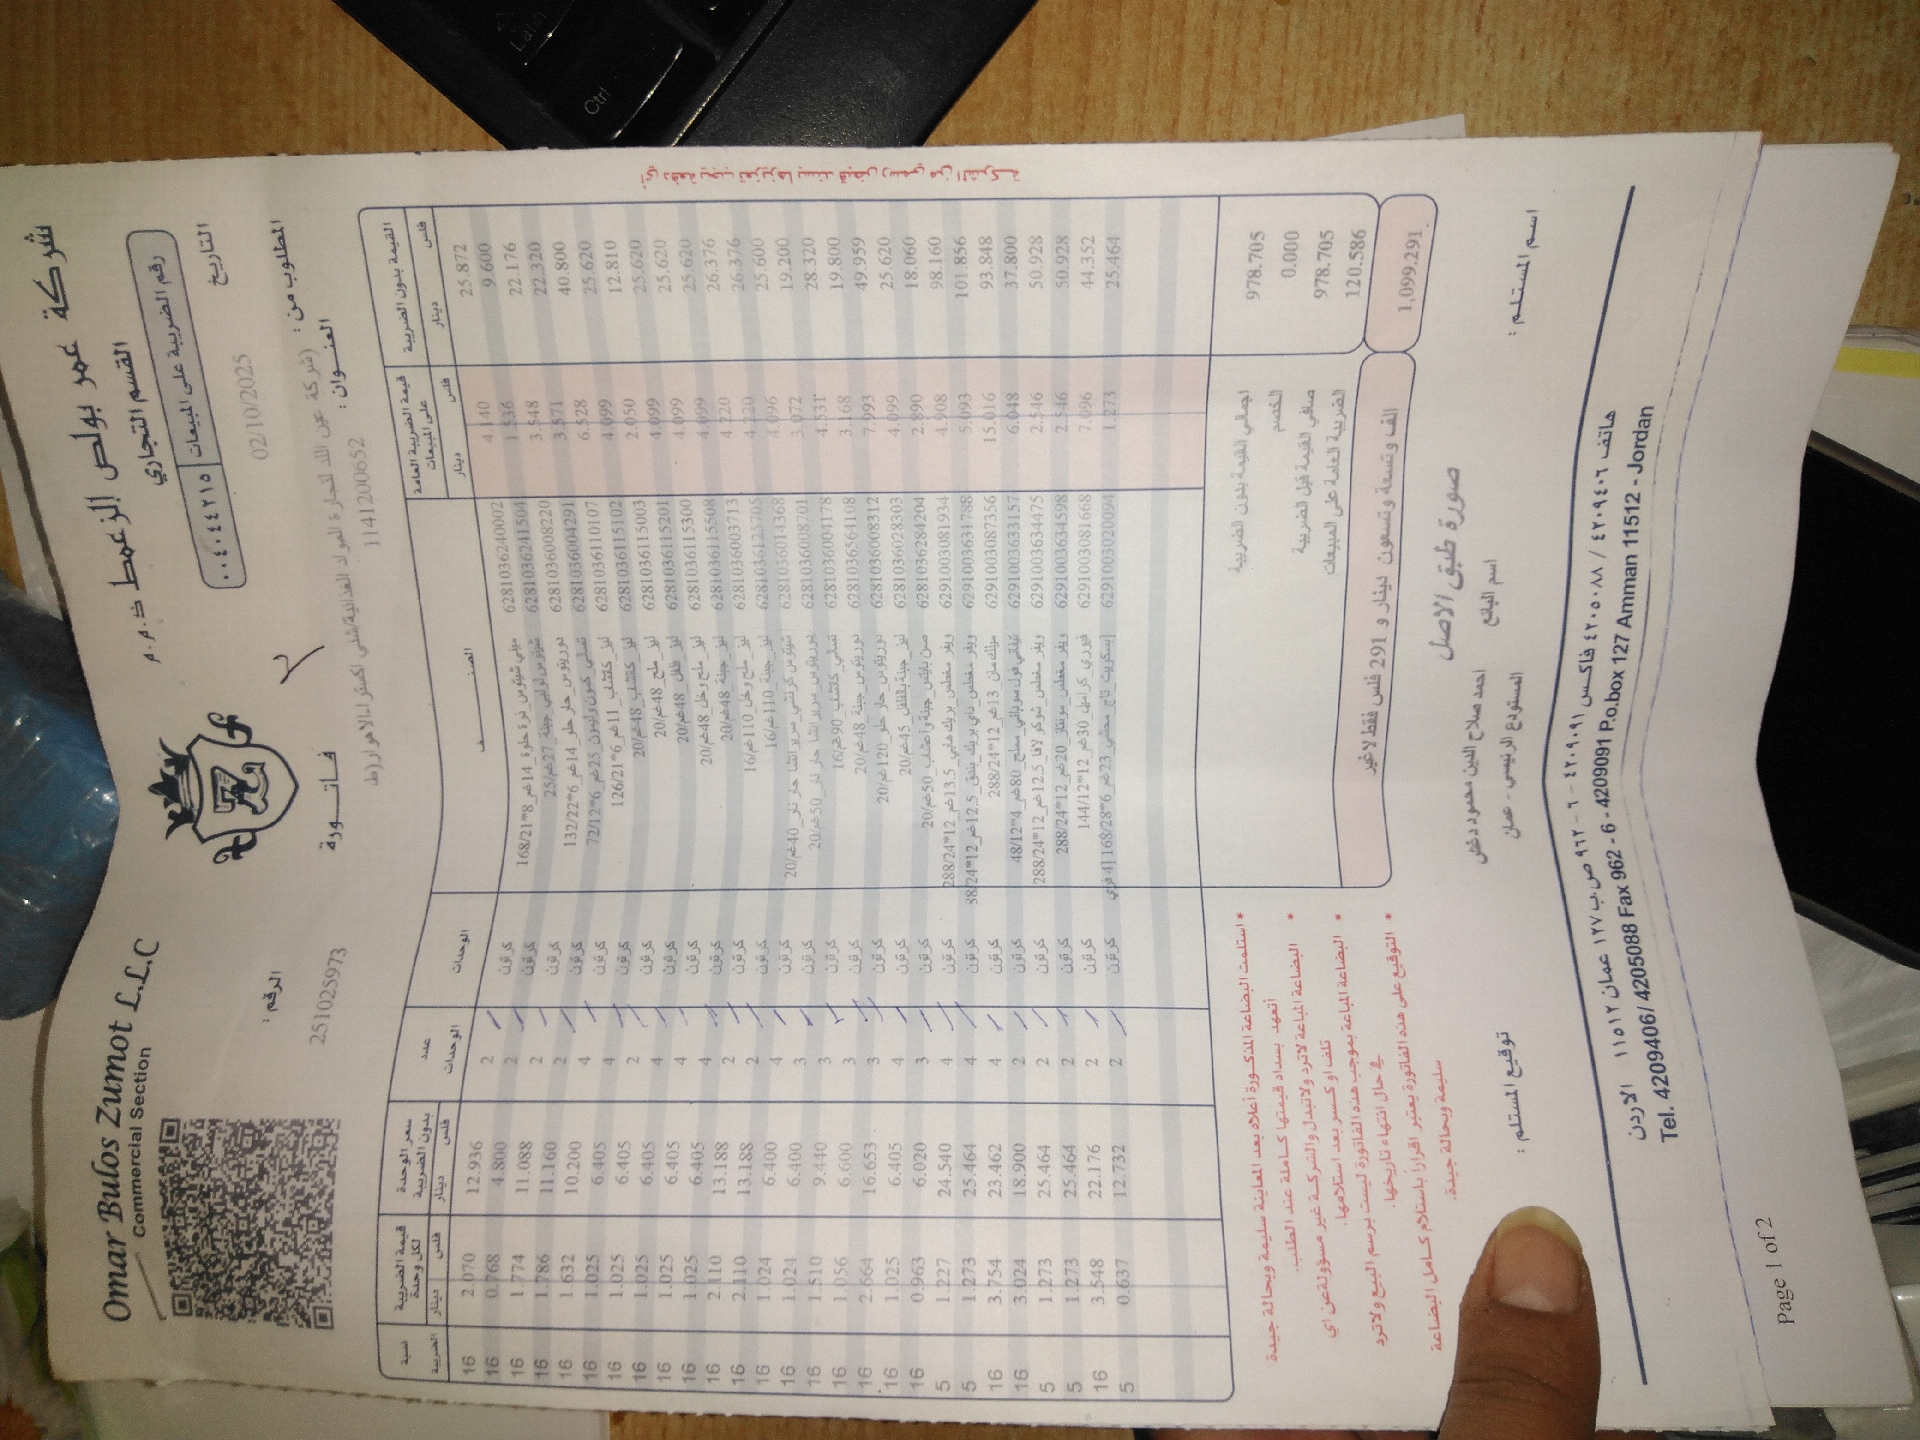 شركة عمر بولص الزعمط ذ.م.م
القسم التجاري
Omar Bulos Zumot L.L.C
Commercial Section
رقم الضريبة على المبيعات ٠٠٤٠٤٢١٥
التاريخ
02/10/2025
فاتورة
الرقم :
251025973
المطلوب من : (شركة عين الله لتجارة المواد الغذائية/شلبي اكسترا-الاهرار(ط
العنوان : 1141200652
القيمة بدون الضريبة | قيمة الضريبة العامة على المبيعات | الصنف | الوحدات | عدد الوحدات | سعر الوحدة بدون الضريبة | قيمة الضريبة لكل وحدة | نسبة الضريبة
فلس دينار | فلس دينار | فلس دينار | فلس دينار
25.872 4.140 6281036240002 ميني شيتوس ذرة حلوة_14غم_8*168/21 كرتون 2 12.936 2.070 16
9.600 1.536 6281036241504 25/27غم كرتون 2 4.800 0.768 16
22.176 3.548 6281036008220 دوريتوس_حار حلو_14غم_6*132/22 كرتون 2 11.088 1.774 16
22.320 3.571 6281036004291 تسالي_كمون وليمون_25غم_6*72/12 كرتون 2 11.160 1.786 16
40.800 6.528 6281036110107 ليز_كاتشاب_11غم_6*126/21 كرتون 4 10.200 1.632 16
25.620 4.099 6281036115102 ليز_ملح_48غم/20 كرتون 4 6.405 1.025 16
12.810 2.050 6281036115003 ليز_كاتشاب_48غم/20 كرتون 2 6.405 1.025 16
25.620 4.099 6281036115201 ليز_فلفل_48غم/20 كرتون 4 6.405 1.025 16
25.620 4.099 6281036115300 ليز_ملح وخل_48غم/20 كرتون 4 6.405 1.025 16
25.620 4.099 6281036115508 ليز_جبنة_48غم/20 كرتون 4 6.405 1.025 16
26.376 4.220 6281036003713 ليز_ملح وخل_110غم/16 كرتون 2 13.188 2.110 16
26.376 4.220 6281036125705 ليز_جبنة_110غم/16 كرتون 2 13.188 2.110 16
25.600 4.096 6281036014368 شيتوس كرنشي_سريراتشا حار نار_40غم/20 كرتون 4 6.400 1.024 16
19.200 3.072 6281036008701 دوريتوس_سريراتشا حار نار_50غم/20 كرتون 3 6.400 1.024 16
28.320 4.531 6281036004178 تسالي_كاتشاب_90غم/16 كرتون 3 9.440 1.510 16
19.800 3.168 6281036564108 دوريتوس_جبنة_48غم/20 كرتون 3 6.600 1.056 16
49.959 7.993 6281036008312 دوريتوس_حار حلو_120غم/20 كرتون 3 16.653 2.664 16
25.620 4.099 6281036028303 ليز_جبنة بالفلفل_45غم/20 كرتون 4 6.405 1.025 16
18.060 2.890 6281036284204 صن بايتس_جبنة واعشاب_50غم/20 كرتون 3 6.020 0.963 16
98.160 4.908 6291003081934 ويفر مغطس_بريك هايي_13.5غم_12*288/24 كرتون 4 24.540 1.227 5
101.856 5.093 6291003631788 ويفر مغطس_داي بريك بندق_12.5غم_12*38/24 كرتون 4 25.464 1.273 5
93.848 15.016 6291003087356 ميلك مان_13غم_12*288/24 كرتون 4 23.462 3.754 16
37.800 6.048 6291003633157 تيفاني فول سوداني_مملح_80غم_4*48/12 كرتون 2 18.900 3.024 16
50.928 2.546 6291003634475 ويفر مغطس_شوكو لافا_12.5غم_12*288/24 كرتون 2 25.464 1.273 5
50.928 2.546 6291003634598 ويفر مغطس_مونتانا_20غم_12*288/24 كرتون 2 25.464 1.273 5
44.352 7.096 6291003081668 فيوري_كراميل_30غم_12*144/12 كرتون 2 22.176 3.548 16
25.464 1.273 6291003020094 بسكويت تاج محشي_23غم_6*168/28[4 فري] كرتون 2 12.732 0.637 5
اجمالي القيمة بدون الضريبة 978.705
الخصم 0.000
صافي القيمة قبل الضريبة 978.705
الضريبة العامة على المبيعات 120.586
الف وتسعة وتسعون دينار و 291 فلس فقط لاغير 1,099.291
أي دفعة يجب تعزيزها بسند قبض رسمي من الشركة
* استلمت البضاعة المذكورة أعلاه بعد المعاينة سليمة وبحالة جيدة
أتعهد بسداد قيمتها كاملة عند الطلب.
* البضاعة المباعة لاترد ولاتبدل والشركة غير مسؤولة عن أي
تلف او كسر بعد استلامها.
* البضاعة المباعة بموجب هذه الفاتورة ليست برسم البيع ولاترد
في حال انتهاء تاريخها.
* التوقيع على هذه الفاتورة يعتبر اقراراً باستلام كامل البضاعة
سليمة وبحالة جيدة.
صورة طبق الاصل
اسم المستلم :
اسم البائع
احمد صلاح الدين محمود دغش
المستودع الرئيسي - عمان
توقيع المستلم :
هاتف ٤٢٠٩٤٠٦ / ٤٢٠٥٠٨٨ فاكس ٤٢٠٩٠٩١ - ٦ - ٩٦٢ ص.ب ١٢٧ عمان ١١٥١٢ الاردن
Tel. 4209406/ 4205088 Fax 962 - 6 - 4209091 P.o.box 127 Amman 11512 - Jordan
Page 1 of 2
Ctrl
Lalt